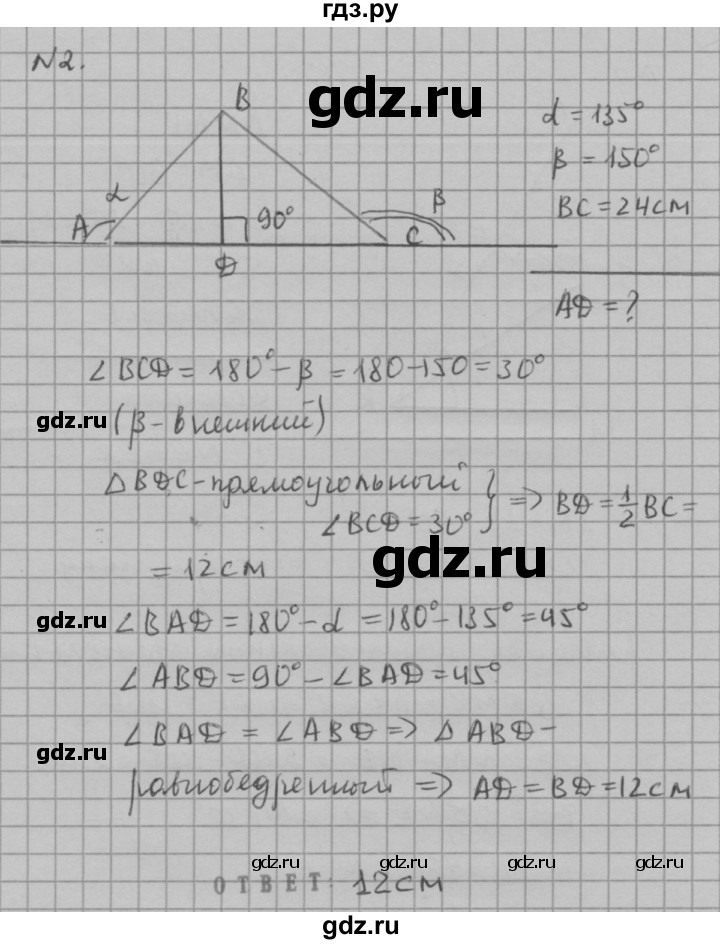 гдз.ру
N2.
gdz.ru
B
α = 135°
α
β
β = 150°
A
90°
C
BC = 24 см
D
AD = ?
∠BCD = 180° - β = 180 - 150 = 30°
gdz.ru
(β - внешний)
△BDC - прямоугольный } => BD = 1/2 BC =
∠BCD = 30°
= 12 см
gdz.ru
gdz.ru
∠BAD = 180° - α = 180° - 135° = 45°
∠ABD = 90° - ∠BAD = 45°
∠BAD = ∠ABD => △ABD -
gdz.ru
равнобедренный => AD = BD = 12 см
gdz.ru gdz.ru gdz.ru gdz.ru
ОТВЕТ: 12 см
gdz.ru